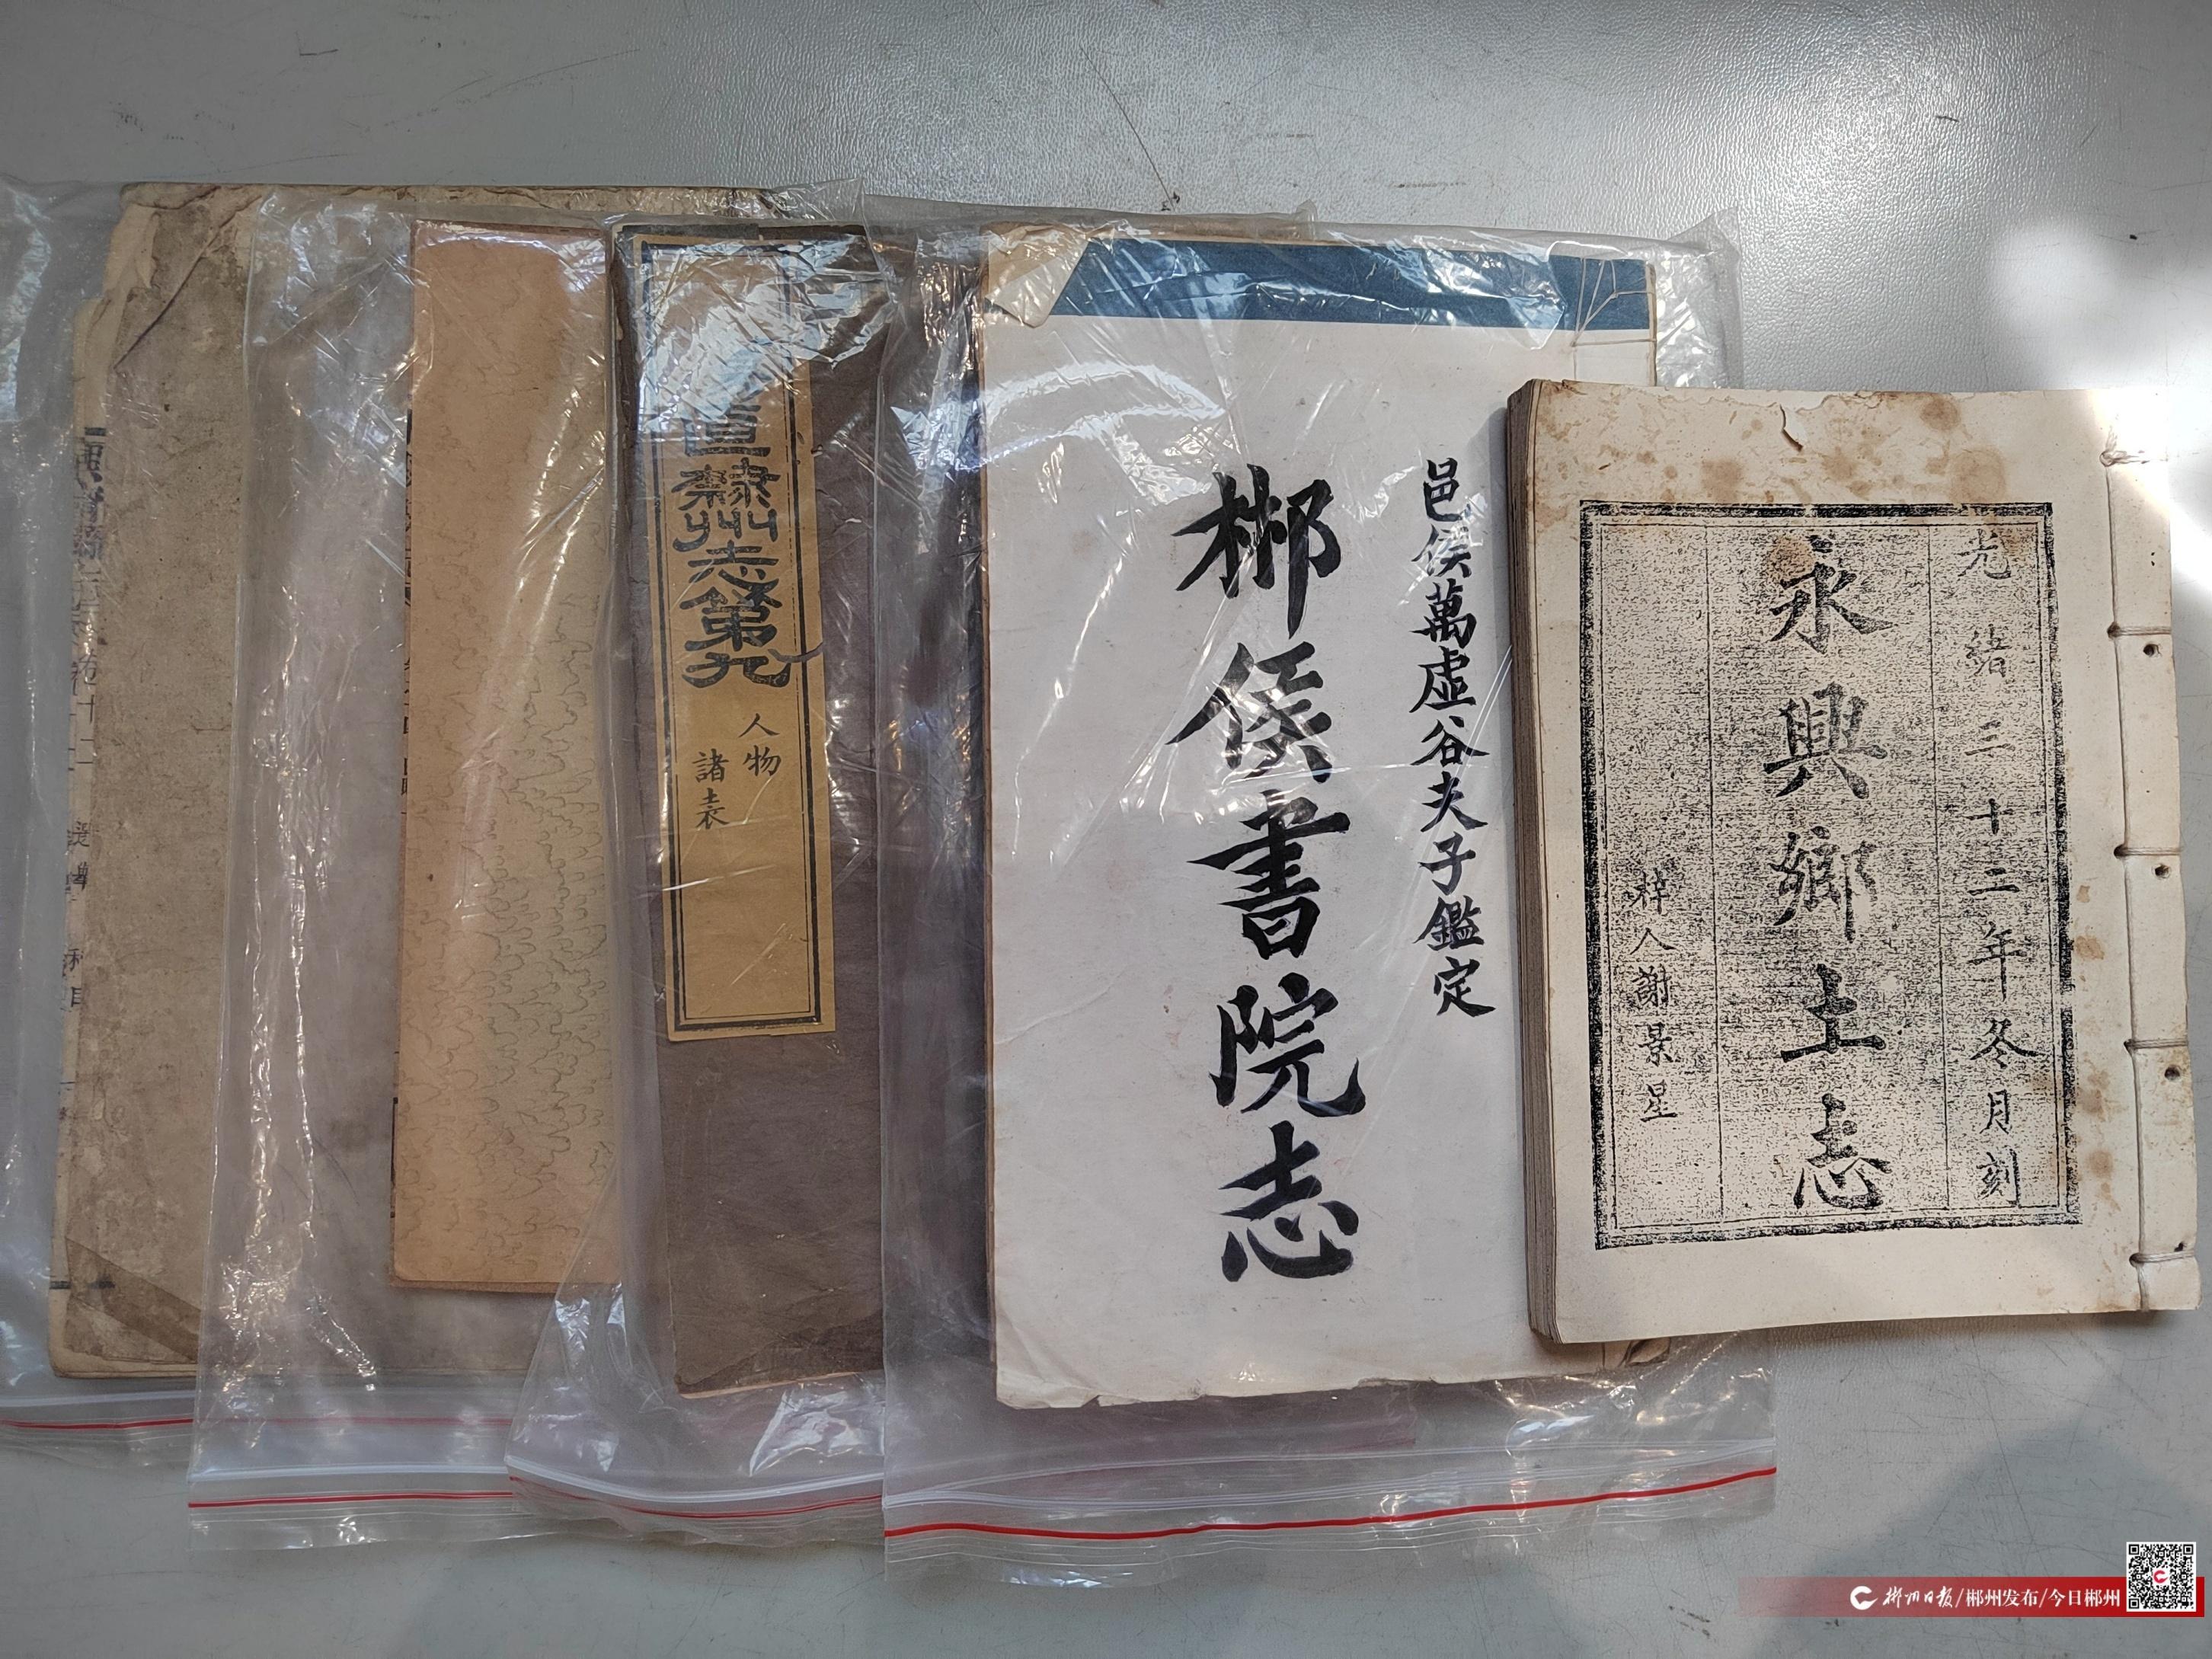 光緒三十二年冬月刻
永興鄉土志
梓人謝景星
邑侯萬虛谷夫子鑑定
郴侯書院志
直隸州志第九
人物
諸表
卷十二
郴州日报/郴州发布/今日郴州